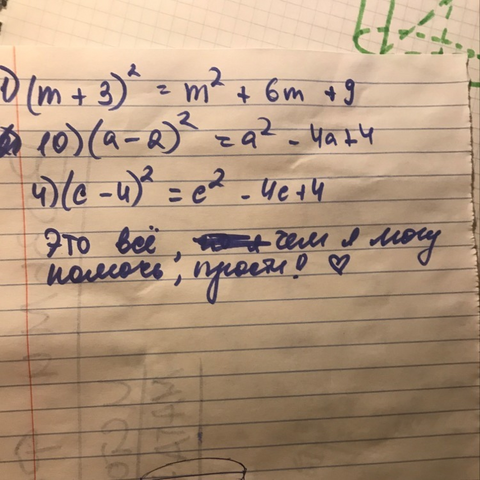 1) (m + 3)² = m² + 6m + 9
10) (a - 2)² = a² - 4a + 4
4) (c - 4)² = c² - 4c + 4
Это всё, чем я могу
помочь, прости! ♡